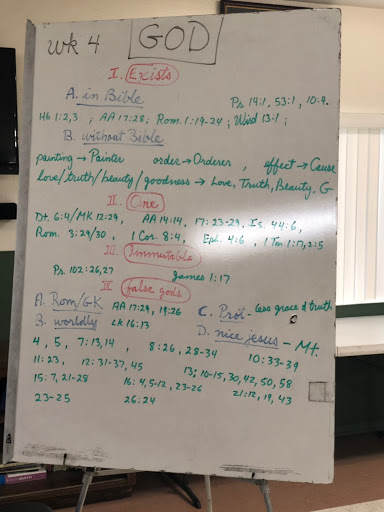 wk 4 GOD
I. Exists
A. in Bible Ps 19:1, 53:1, 10:4.
Hb 1:2,3 ; AA 17:28; Rom. 1:19-24; Wisd 13:1;
B. without Bible
painting → Painter order → Orderer, effect → Cause
love/truth/beauty/goodness → Love, Truth, Beauty, G
II. One
Dt. 6:4/MK 12:29, AA 14:14, 17:23-29, Is. 44:6,
Rom. 3:29/30, 1 Cor. 8:4, Eph. 4:6, 1 Tm 1:17, 2:5
III. Immutable
Ps. 102:26,27 James 1:17
IV false gods
A. Rom/GK AA 17:29, 19:26 C. Prot- less grace & truth
B. worldly LK 16:13 D. nice jesus - Mt.
4, 5, 7:13,14, 8:26, 28-34 10:33-39
11:23, 12:31-37, 45 13: 10-15, 30, 42, 50, 58
15:7, 21-28 16: 4, 5-12, 23-26 21:12, 19, 43
23-25 26:24